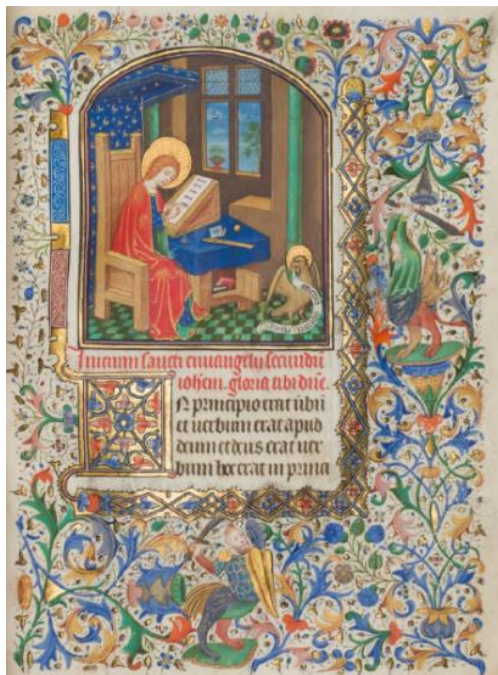 Inicium sancti euuangelij secundū
iohem. gloria tibi dn̄e.
N principio erat ūbū
et uerbum erat apud
deum et deus erat uer
bum hoc erat in princi